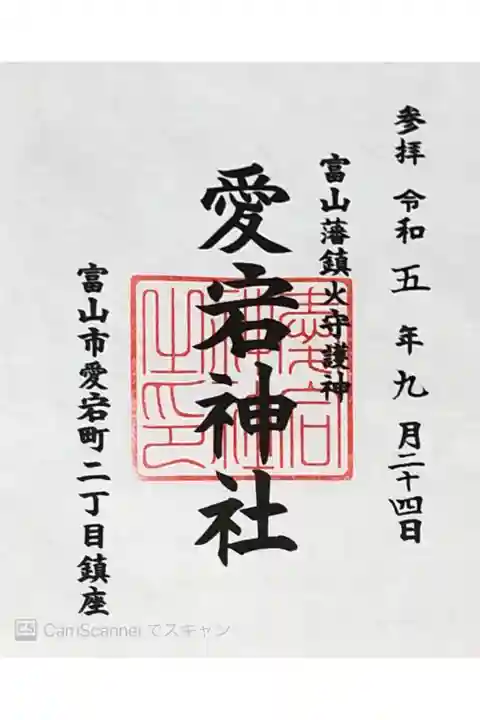 参拝 令和五年九月二十四日
富山藩鎮火守護神
愛宕神社
愛宕神社之印
富山市愛宕町二丁目鎮座
CS CamScanner でスキャン